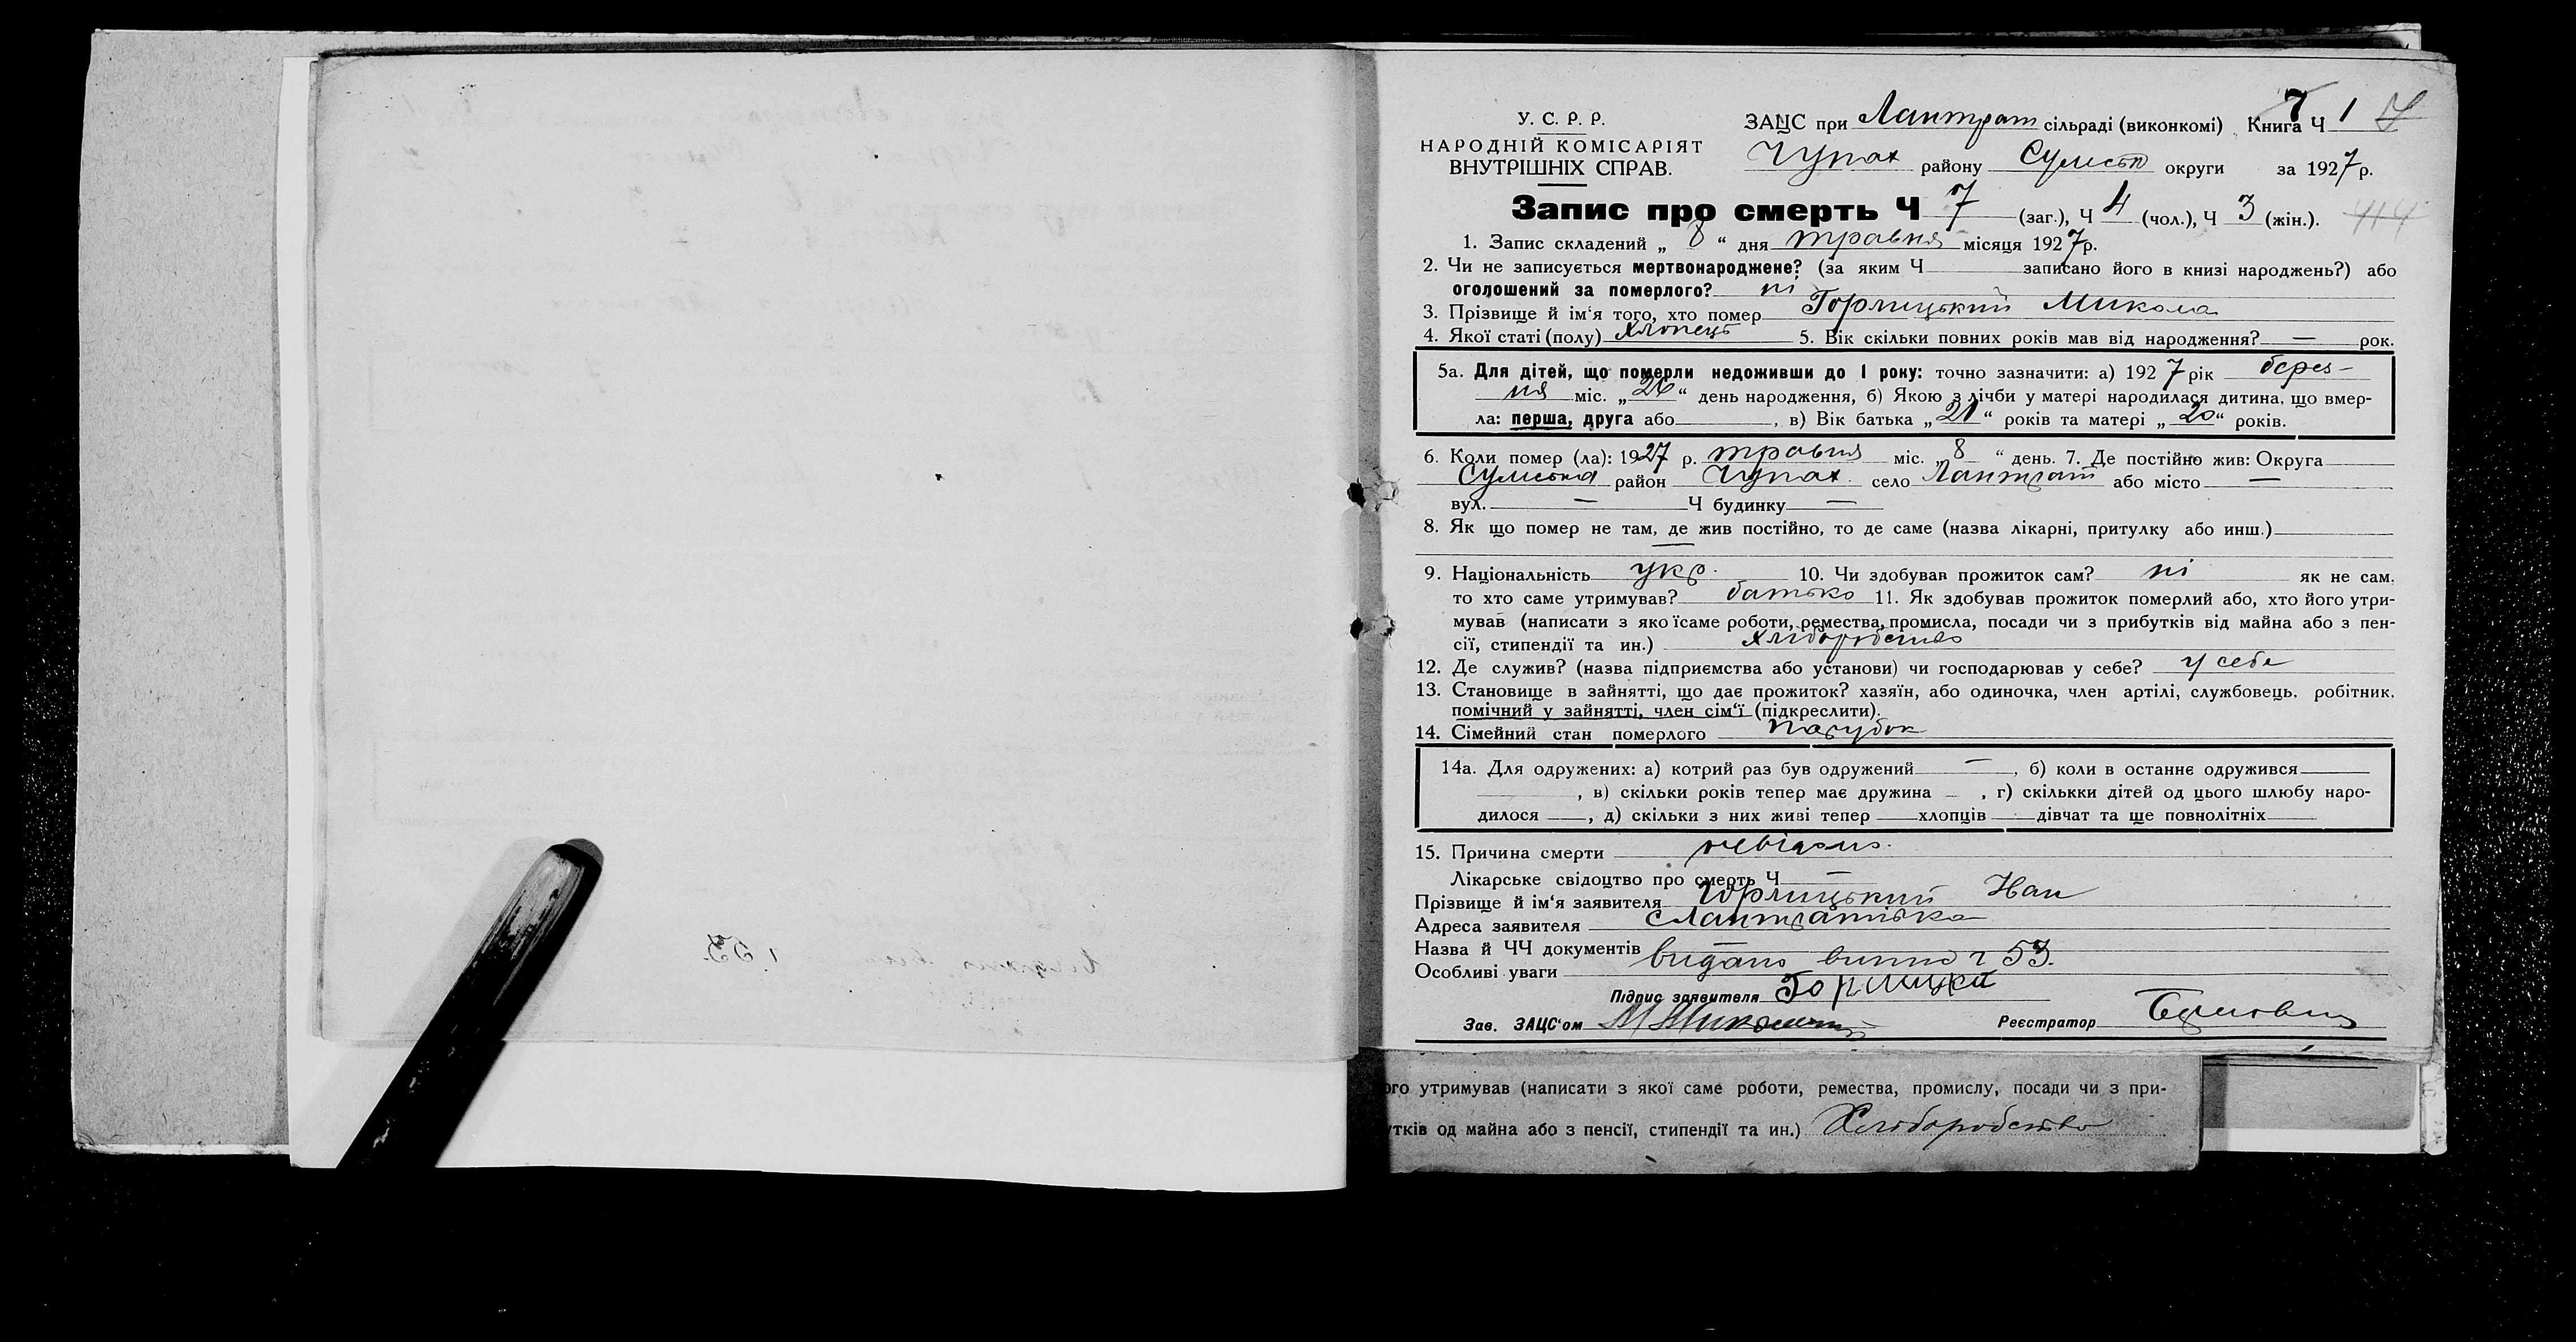 У. С. Р. Р.
НАРОДНІЙ КОМІСАРІЯТ
ВНУТРІШНІХ СПРАВ.
ЗАЦС при Лантрат сільраді (виконкомі) Книга Ч 1
7
Чупах району Сумськ округи за 1927 р.
Запис про смерть Ч 7 (заг.), Ч 4 (чол.), Ч 3 (жін.).
414
1. Запис складений „ 8 “ дня травня місяця 1927 р.
2. Чи не записується мертвонароджене? (за яким Ч записано його в книзі народжень?) або
оголошений за померлого? ні
3. Прізвище й ім‘я того, хто помер Горлицький Микола
4. Якої статі (полу) хлопець 5. Вік скільки повних років мав від народження? — рок.
5а. Для дітей, що померли недоживши до 1 року: точно зазначити: а) 1927 рік берез-
ня міс. „ 26 “ день народження, б) Якою з лічби у матері народилася дитина, що вмер-
ла: перша, друга або , в) Вік батька „ 21 “ років та матері „ 20 “ років.
6. Коли помер (ла): 1927 р. травня міс. „ 8 “ день. 7. Де постійно жив: Округа
Сумська район Чупах. село Лантрат або місто —
вул. — Ч будинку —
8. Як що помер не там, де жив постійно, то де саме (назва лікарні, притулку або инш.)
—
9. Національність укр. 10. Чи здобував прожиток сам? ні як не сам,
то хто саме утримував? батько 11. Як здобував прожиток померлий або, хто його утри-
мував (написати з якоїсаме роботи, ремества, промисла, посади чи з прибутків від майна або з пен-
сії, стипендії та ин.) хліборобство
12. Де служив? (назва підприємства або установи) чи господарював у себе? у себе
13. Становище в зайнятті, що дає прожиток? хазяїн, або одиночка, член артілі, службовець, робітник,
помічний у зайнятті, член сім‘ї (підкреслити).
14. Сімейний стан померлого парубок
14а. Для одружених: а) котрий раз був одружений — , б) коли в останнє одружився
, в) скільки років тепер має дружина — , г) скількки дітей од цього шлюбу наро-
дилося , д) скільки з них живі тепер хлопців дівчат та ще повнолітніх
15. Причина смерти невідомо.
Лікарське свідоцтво про смерть Ч —
Прізвище й ім‘я заявителя Горлицький
Адреса заявителя с Лантратівка
Назва й ЧЧ документів —
Особливі уваги видано 53.
Підпис заявителя Горлицкий
Зав. ЗАЦС‘ом
Реєстратор
ого утримував (написати з якої саме роботи, ремества, промислу, посади чи з при-
утків од майна або з пенсії, стипендії та ин.) Хліборобство